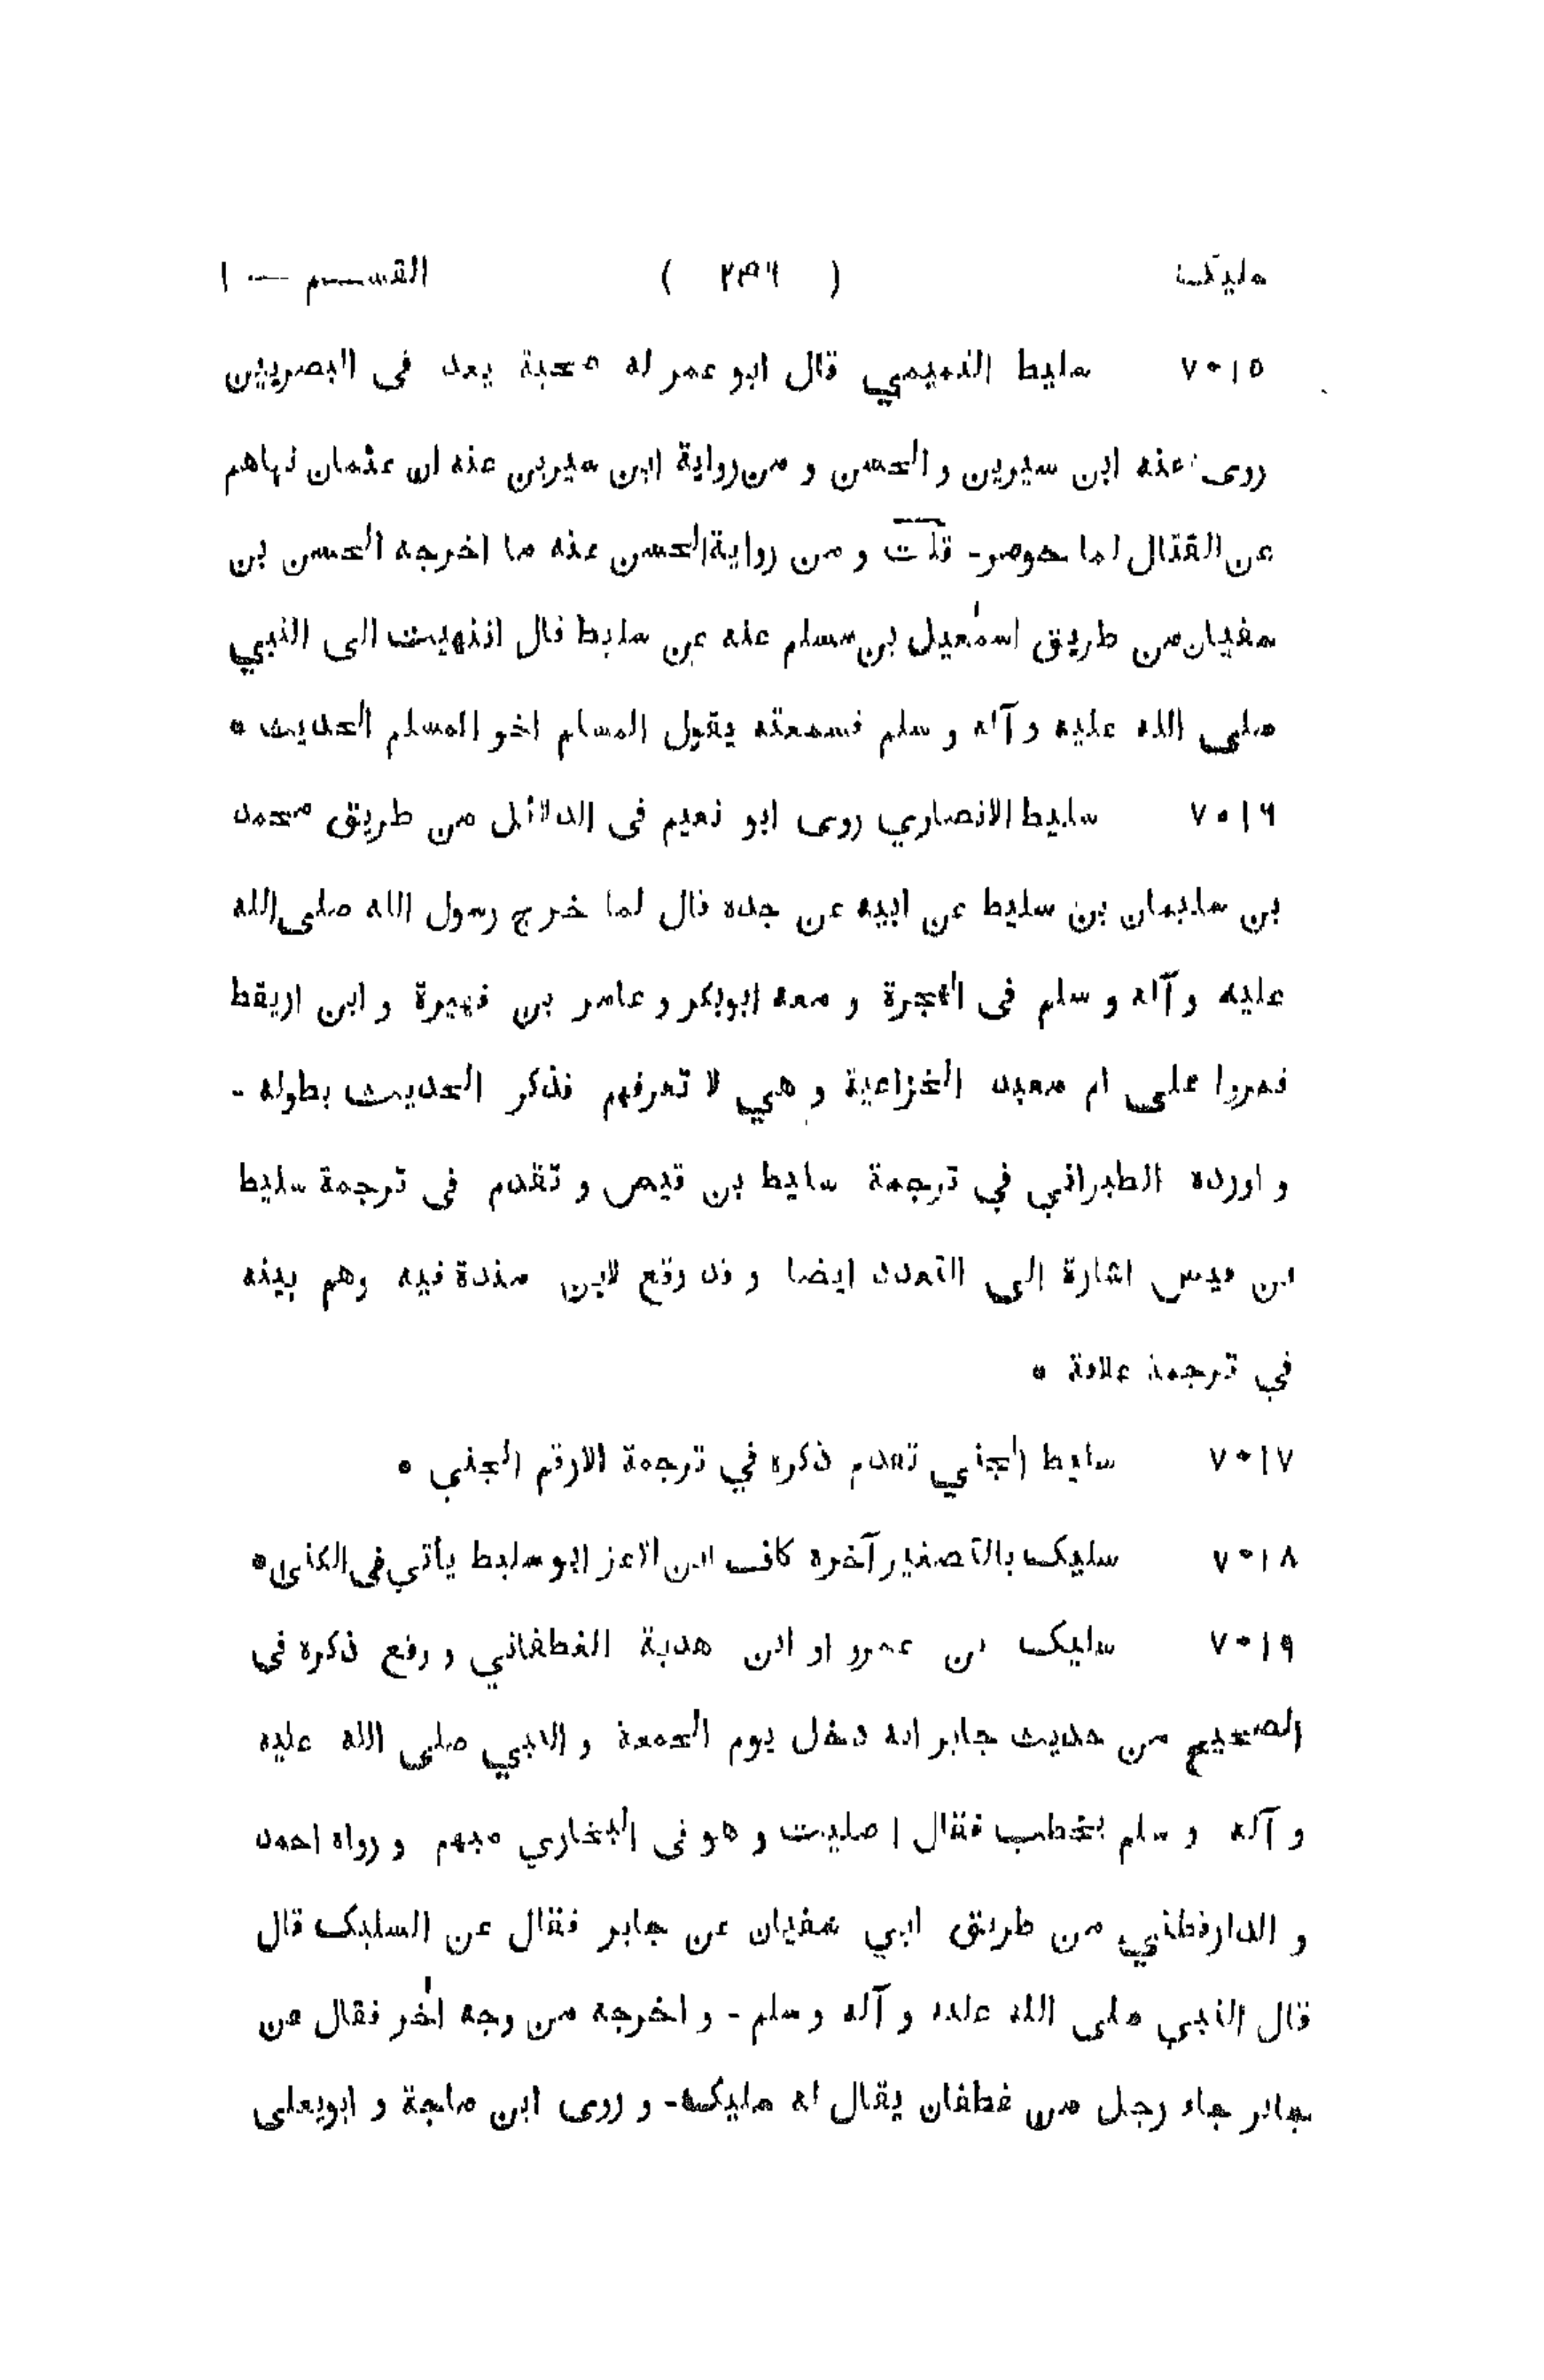 سليک ( ٢٣٦ ) القســم — ١
٧٠١٥ سليط التميمي قال ابو عمر له صحبة يعد فى البصريين
روى عنه ابن سيرين و الحسن و من رواية ابن سيرين عنه ان عثمان نهاهم
عن القتال لما حوصر- قلت و من رواية الحسن عنه ما اخرجه الحسن بن
سفيان من طريق اسمٰعيل بن مسلم عنه عن سليط قال انتهيت الى النبي
صلى الله عليه و آله و سلم فسمعته يقول المسلم اخو المسلم الحديث *
٧٠١٦ سليط الانصاري روى ابو نعيم فى الدلائل من طريق محمد
بن سليمان بن سليط عن ابيه عن جده قال لما خرج رسول الله صلى الله
عليه و آله و سلم فى الهجرة و معه ابوبكر و عامر بن فهيرة و ابن اريقط
فمروا على ام معبد الخزاعية و هي لا تعرفهم فذكر الحديث بطوله -
و اورده الطبراني في ترجمة سليط بن قيس و تقدم فى ترجمة سليط
بن قيس اشارة الى التعدد ايضا و قد وقع لابن مندة فيه وهم بينه
في ترجمة علاثة *
٧٠١٧ سليط الجني تقدم ذكره في ترجمة الارقم الجني *
٧٠١٨ سليک بالتصغير آخره كاف ابن الاعز ابو سليط يأتي فى الكنى *
٧٠١٩ سليک بن عمرو او ابن هدبة الغطفاني و وقع ذكره فى
الصحيح من حديث جابر انه دخل يوم الجمعة و النبي صلى الله عليه
و آله و سلم يخطب فقال ا صليت و هو فى البخاري مبهم و رواه احمد
و الدارقطني من طريق ابي سفيان عن جابر فقال عن السليک قال
قال النبي صلى الله عليه و آله و سلم - و اخرجه من وجه اٰخر فقال عن
جابر جاء رجل من غطفان يقال له سليک - و روى ابن ماجة و ابويعلى